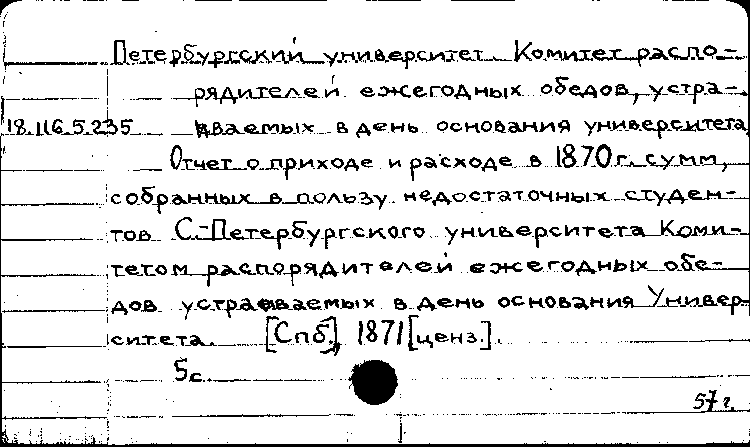 Петербургский университет. Комитет распо-
рядителей ежегодных обедов, устра-
18.116.5.235 иваемых в день основания университета
Отчет о приходе и расходе в 1870 г. сумм,
собранных в пользу недостаточных студен-
тов С.-Петербургского университета Коми-
тетом распорядителей ежегодных обе-
дов устраиваемых в день основания Универ-
ситета. [Спб.], 1871 [ценз.].
5 с.
57 г.